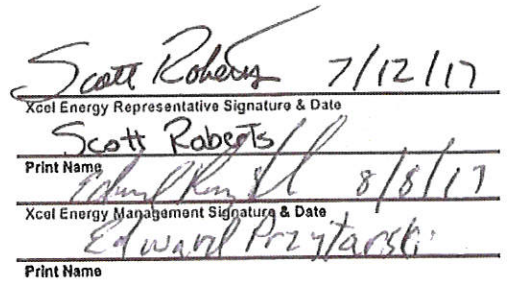 Scott Roberts 7/12/17
Xcel Energy Representative Signature & Date
Scott Roberts
Print Name
8/8/17
Xcel Energy Management Signature & Date
Edward Przytarski
Print Name